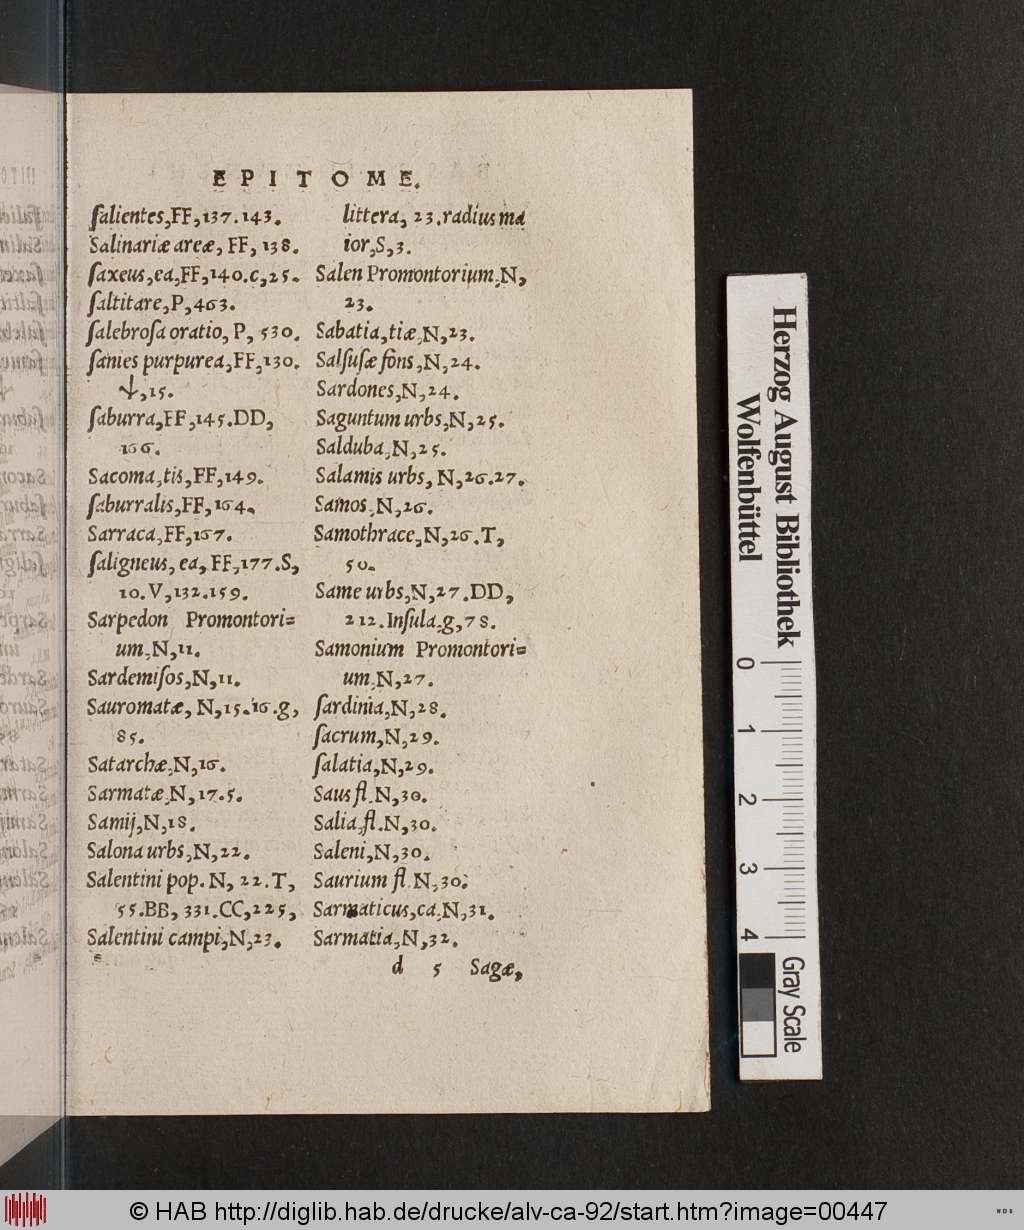 EPITOME.
ſalientes,FF,137.143.
Salinariæ areæ, FF, 138.
ſaxeus,ea,FF,140.c,25.
ſaltitare,P,463.
ſalebroſa oratio, P, 530.
ſanies purpurea,FF,130.
,15.
ſaburra,FF,145.DD,
166.
Sacoma,tis,FF,149.
ſaburralis,FF,164.
Sarraca,FF,167.
ſaligneus, ea, FF,177.S,
10.V,132.159.
Sarpedon Promontori=
um,N,11.
Sardemiſos,N,11.
Sauromatæ, N,15.16.g,
85.
Satarchæ,N,16.
Sarmatæ,N,17.5.
Samij,N,18.
Salona urbs,N,22.
Salentini pop. N, 22.T,
55.BB, 331.CC,225,
Salentini campi,N,23.
littera, 23.radius ma
ior,S,3.
Salen Promontorium,N,
23.
Sabatia,tiæ,N,23.
Salſuſæ fons,N,24.
Sardones,N,24.
Saguntum urbs,N,25.
Salduba,N,25.
Salamis urbs, N,26.27.
Samos,N,26.
Samothrace,N,26.T,
50.
Same urbs,N,27.DD,
212.Inſula,g,78.
Samonium Promontori=
um,N,27.
ſardinia,N,28.
ſacrum,N,29.
ſalatia,N,29.
Saus fl.N,30.
Salia,fl.N,30.
Saleni,N,30.
Saurium fl.N,30.
Sarmaticus,ca,N,31.
Sarmatia,N,32.
d 5 Sagæ,
Herzog August Bibliothek
Wolfenbüttel
0 1 2 3 4
Gray Scale
© HAB http://diglib.hab.de/drucke/alv-ca-92/start.htm?image=00447
WDB